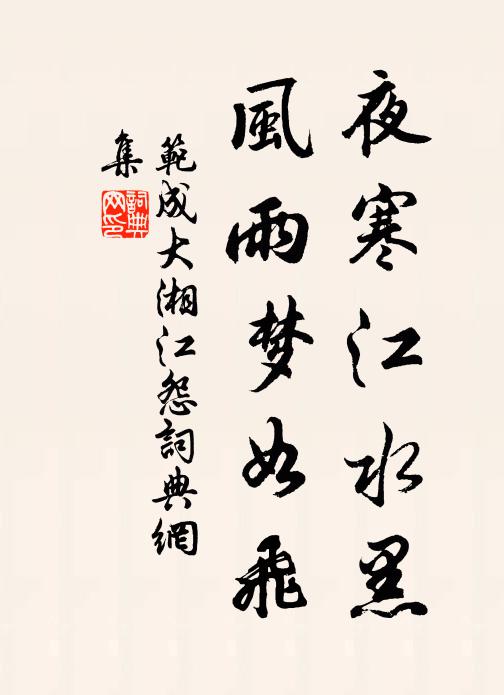 夜寒江水黑
風雨梦如飛
範成大湘江怨詞典網
集
詞典網印